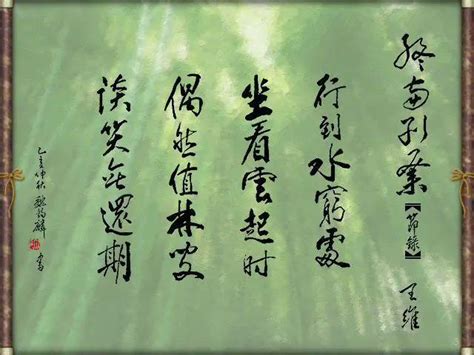 終南別業【節錄】 王維
行到水窮處
坐看雲起时
偶然值林叟
談笑無還期
乙亥仲秋 書